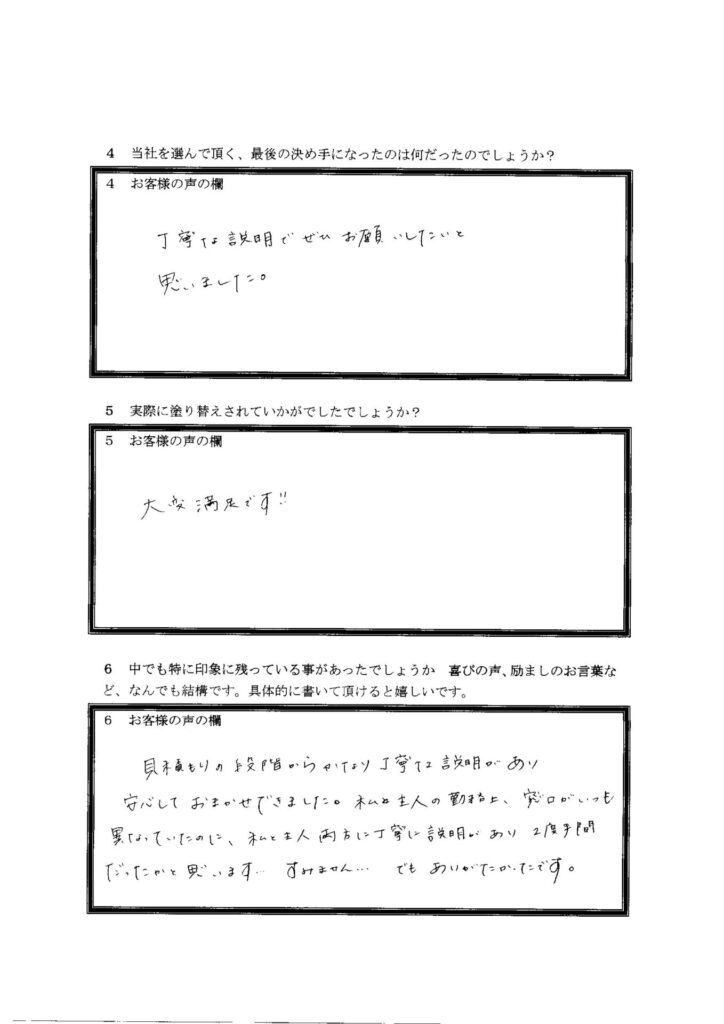 ４　当社を選んで頂く、最後の決め手になったのは何だったのでしょうか？
４　お客様の声の欄
丁寧な説明でぜひお願いしたいと
思いました。
５　実際に塗り替えされていかがでしたでしょうか？
５　お客様の声の欄
大変満足です!!
６　中でも特に印象に残っている事があったでしょうか　喜びの声、励ましのお言葉な
ど、なんでも結構です。具体的に書いて頂けると嬉しいです。
６　お客様の声の欄
見積もりの段階からかなり丁寧な説明があり
安心しておまかせできました。私と主人の勤務上、窓口がいつも
異なっていたのに、私と主人両方に丁寧に説明があり２度手間
だったかと思います… すみません… でもありがたかったです。